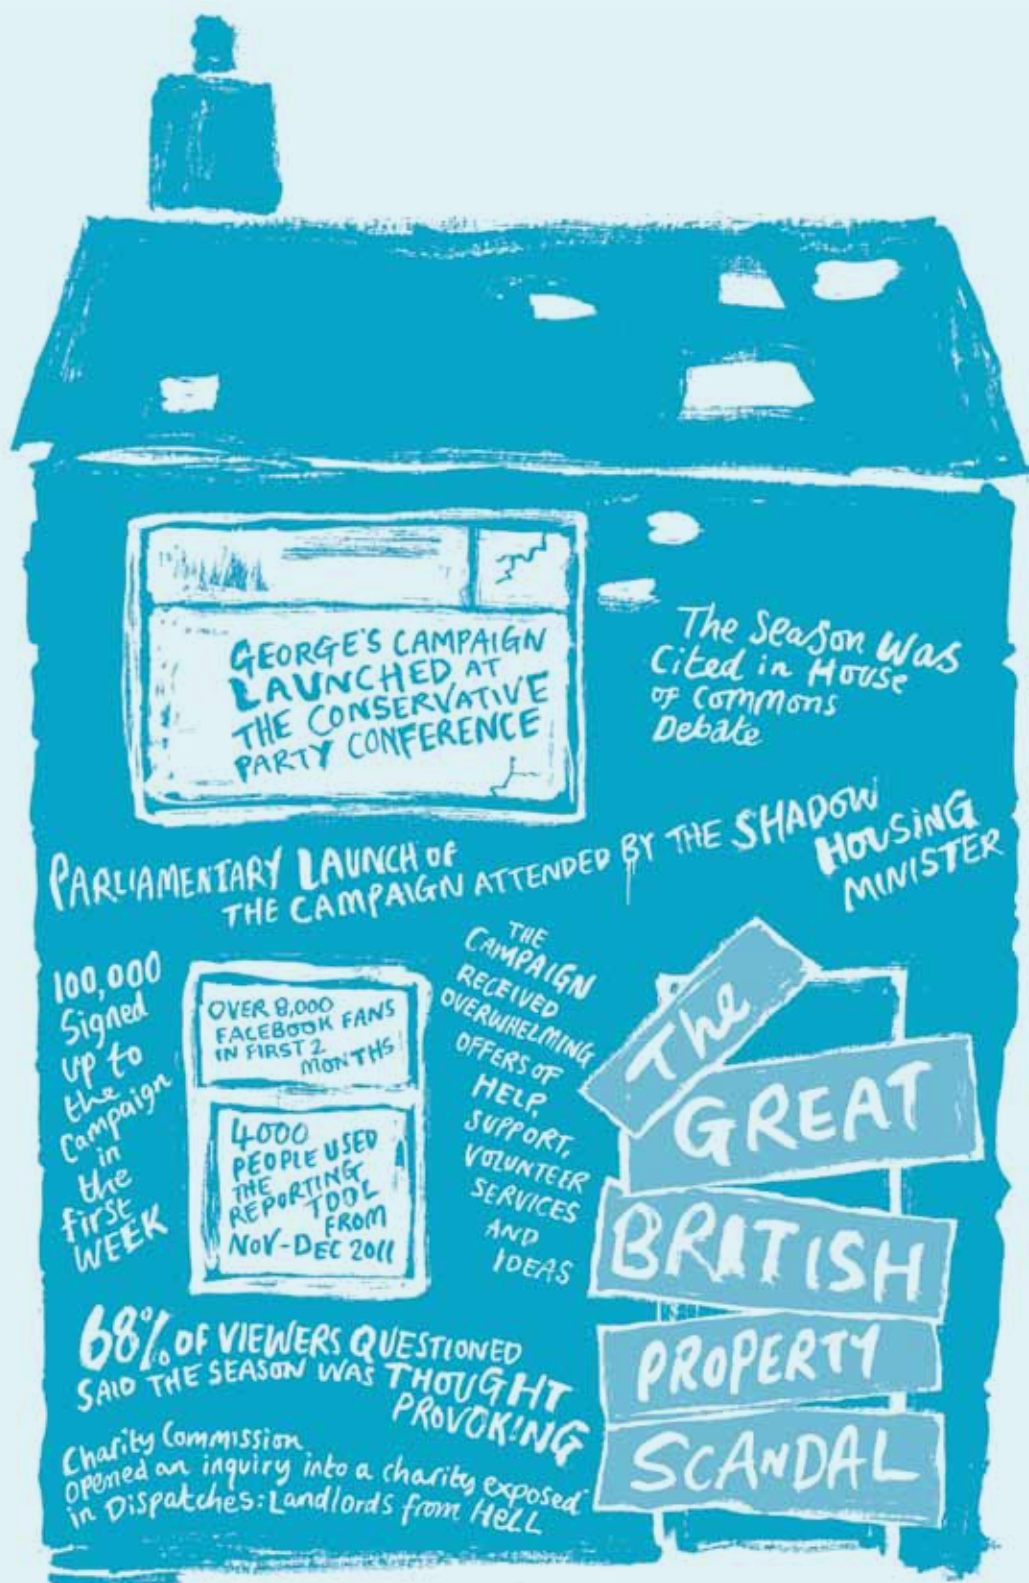 GEORGE'S CAMPAIGN
LAUNCHED AT
THE CONSERVATIVE
PARTY CONFERENCE
The Season Was
Cited in House
of Commons
Debate
PARLIAMENTARY LAUNCH OF
THE CAMPAIGN ATTENDED BY THE SHADOW
HOUSING
MINISTER
100,000
Signed
up to
the
Campaign
in
the
first
WEEK
OVER 8,000
FACEBOOK FANS
IN FIRST 2
MONTHS!
4000
PEOPLE USED
THE
REPORTING
TOOL
FROM
NOV-DEC 2011
THE
CAMPAIGN
RECEIVED
OVERWHELMING
OFFERS OF
HELP,
SUPPORT,
VOLUNTEER
SERVICES
AND
IDEAS
The
GREAT
BRITISH
PROPERTY
SCANDAL
68% OF VIEWERS QUESTIONED
SAID THE SEASON WAS THOUGHT
PROVOKING
Charity Commission
opened an inquiry into a charity exposed
in Dispatches: Landlords from HELL